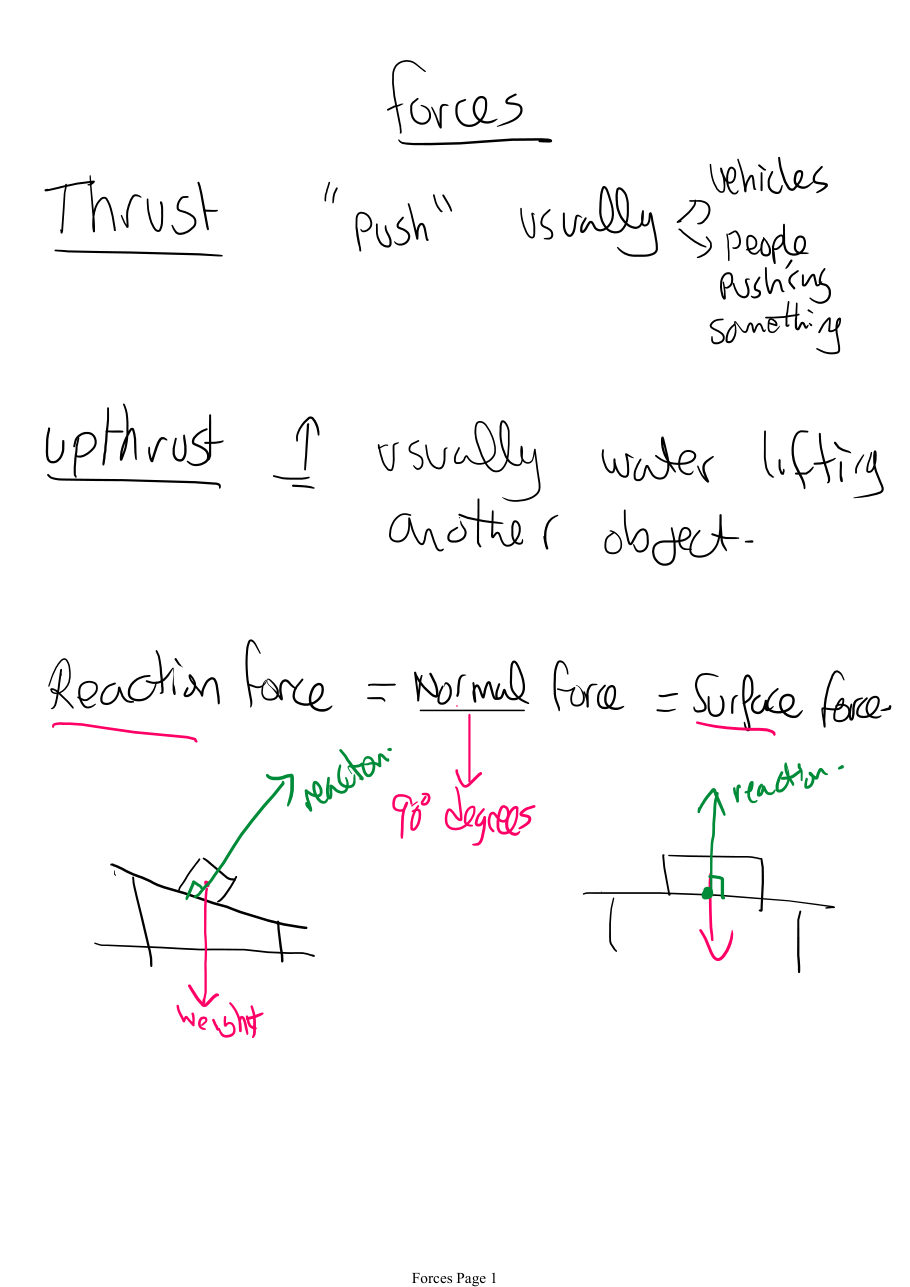 forces
Thrust "Push" usually vehicles
people
pushing
something
upthrust usually water lifting
another object.
Reaction force = Normal force = Surface force.
reaction.
90° degrees
reaction.
weight
Forces Page 1